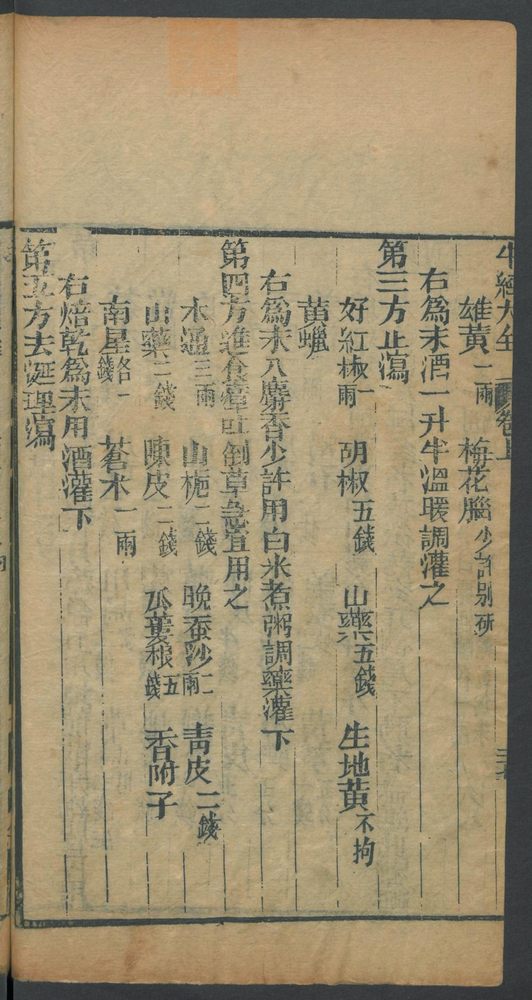 牛經大全 卷上
雄黃二兩 梅花腦少許別研
右爲末酒一升半溫暖調灌之
第三方止瀉
好紅椒一兩 胡椒五錢 山藥五錢 生地黃不拘
黄蠟
右爲末入麝香少許用白水煮粥調藥灌下
第四方 倒草急宜用之
木通三兩 山梔二錢 晚蚕沙二兩 青皮二錢
山藥三錢 陳皮二錢 瓜蔞根五錢 香附子
南星 蒼朮一兩
右焙乾爲末用酒灌下
第五方去涎理瀉